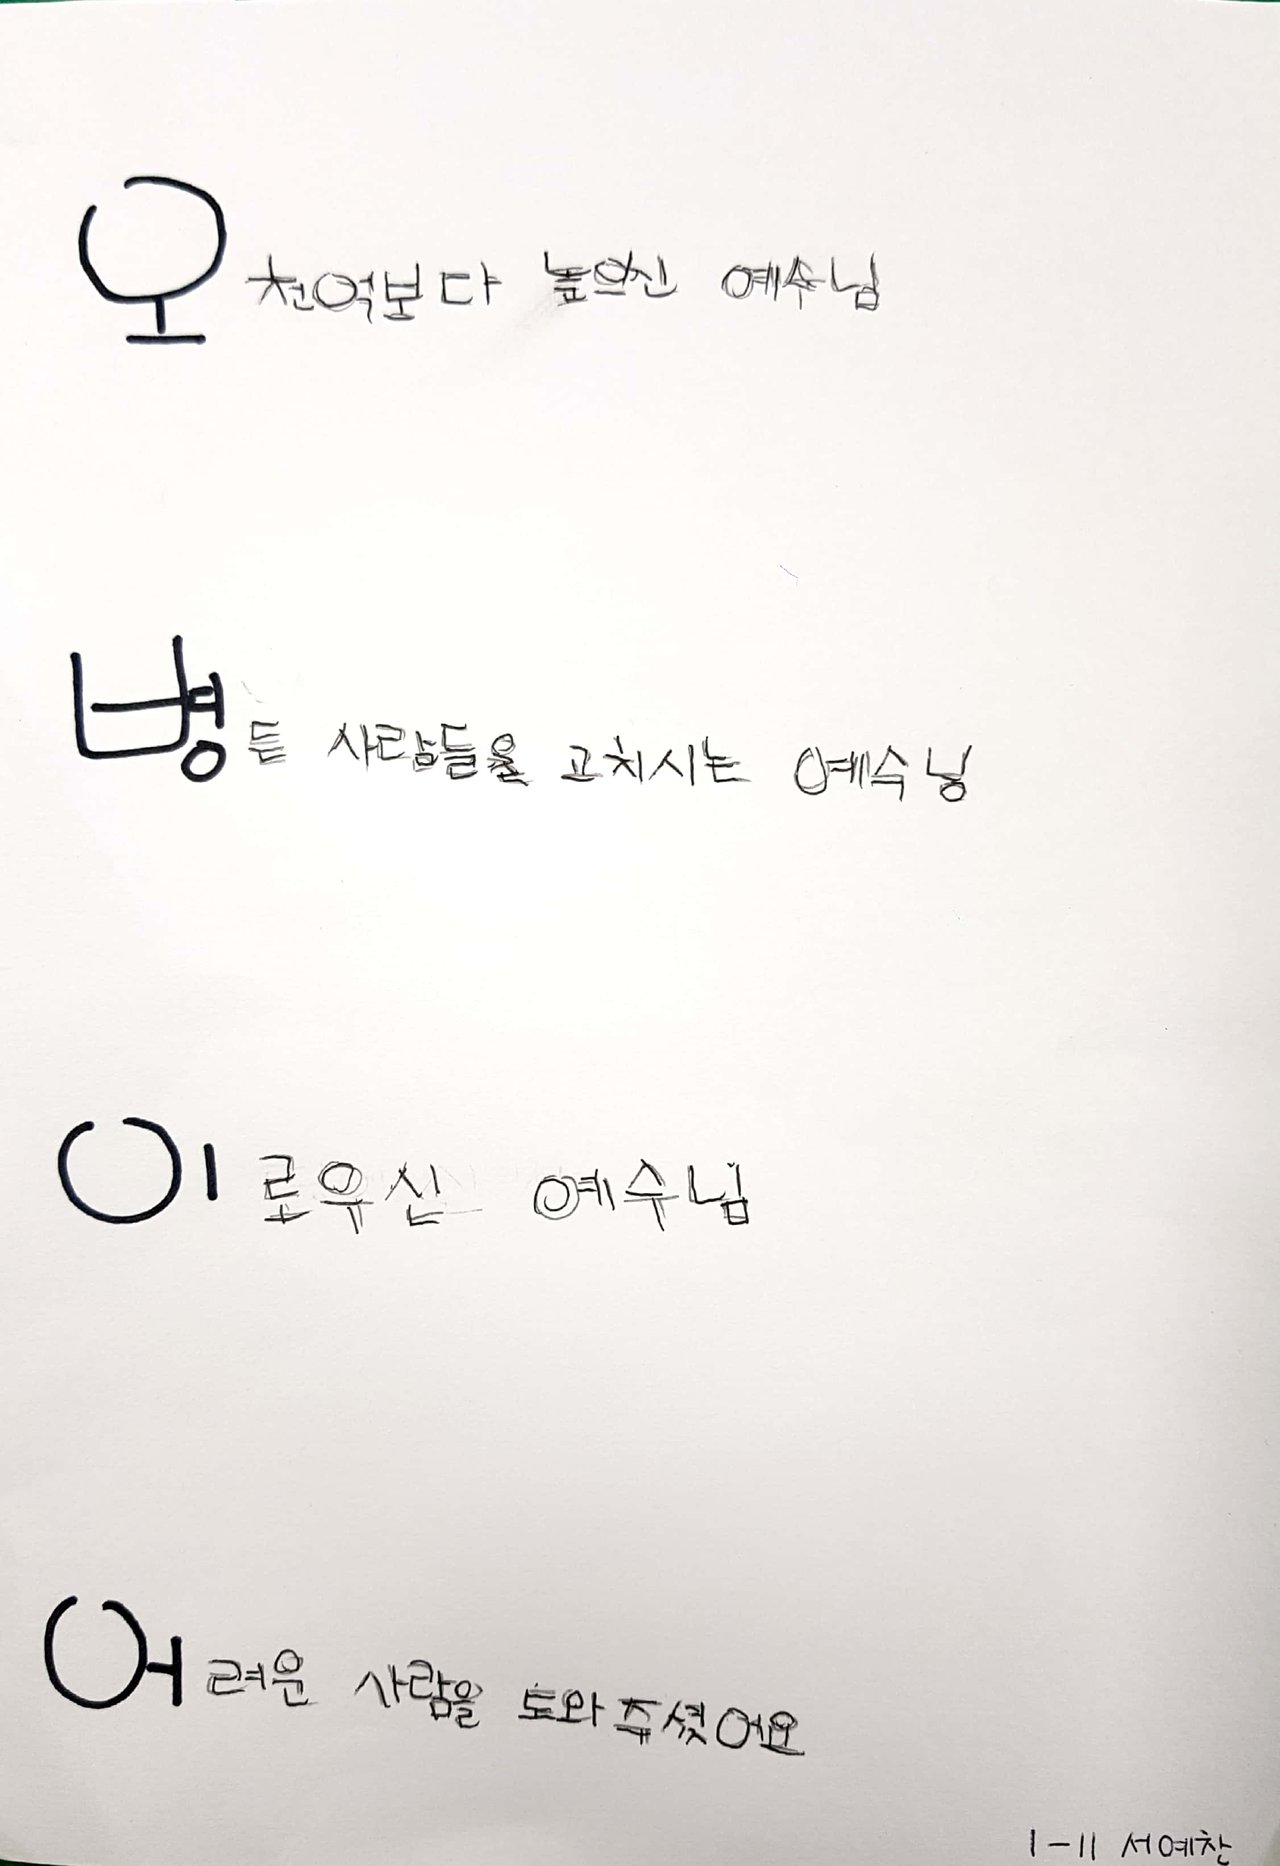 오천억보다 높으신 예수님
병든 사람들을 고치시는 예수닝
이로우신 예수님
어려운 사람을 도와주셨어요
1-11 서예찬